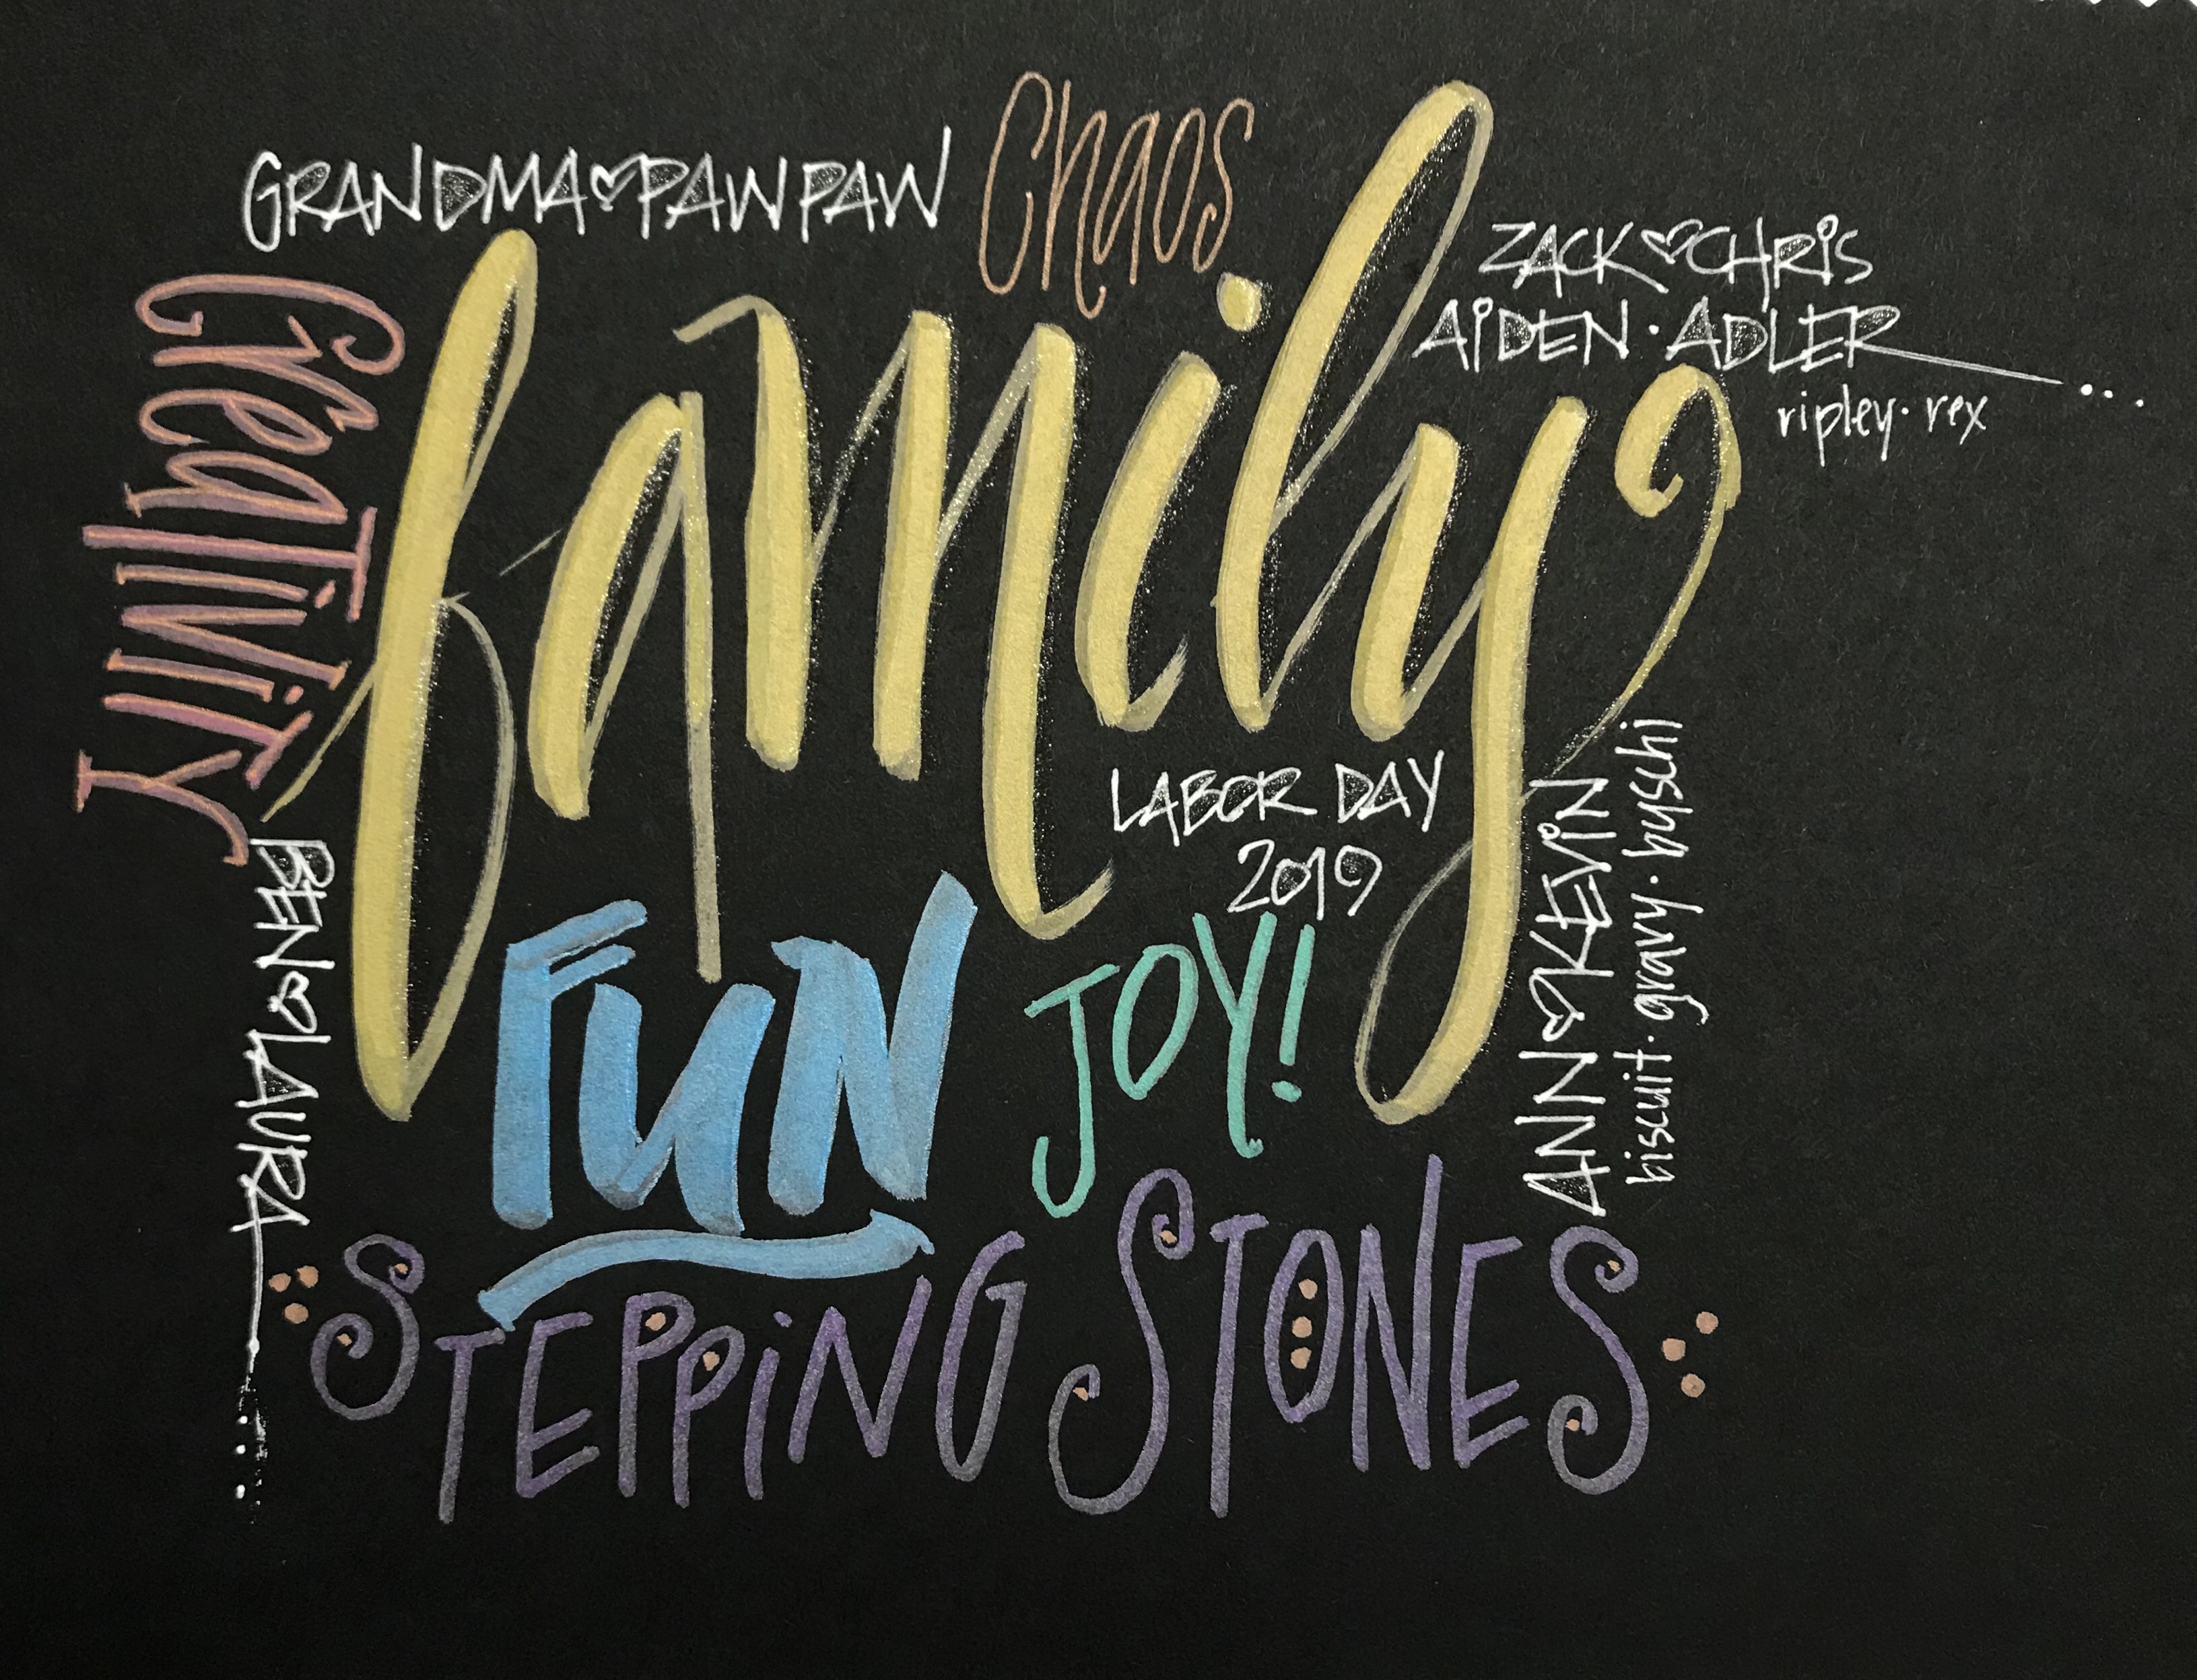 Chaos
GRANDMA♡PAWPAW
ZACK♡CHRIS
AIDEN · ADLER...
ripley · rex
CreaTiviTY
family
LABOR DAY
2019
BEN♡LAURA
FUN
JOY!
ANN♡KEVIN
biscuit · gravy · byschi
STEPPING STONES